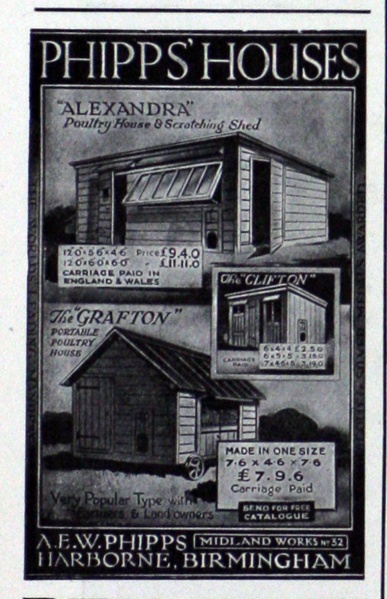 PHIPPS' HOUSES
"ALEXANDRA"
Poultry House & Scratching Shed
12·0×5·6×4·6 Price £9.4.0
12·0×6·0×6·0 " £11.11.0
CARRIAGE PAID IN
ENGLAND & WALES
The "CLIFTON"
CARRIAGE
PAID
6×4×4 £2.5.0
The "GRAFTON"
PORTABLE
POULTRY
HOUSE
MADE IN ONE SIZE
7·6 × 4·6 × 7·6
£7.9.6
Carriage Paid
SEND FOR FREE
CATALOGUE
Very Popular Type with
Farmers & Land owners
A.E.W. PHIPPS MIDLAND WORKS Nº 32
HARBORNE, BIRMINGHAM